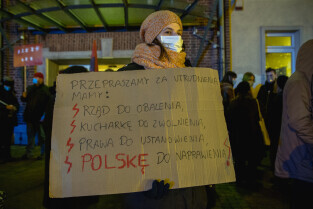 PRZEPRASZAMY ZA UTRUDNIENIA
MAMY:
RZĄD DO OBALENIA,
KUCHARKĘ DO ZWOLNIENIA,
PRAWA DO USTANOWIENIA
POLSKĘ DO NAPRAWIENIA